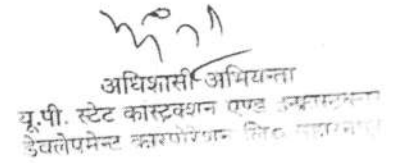 अधिशासी अभियन्ता
यू.पी. स्टेट कांस्ट्रक्शन एण्ड
डेवलेपमेन्ट कारपोरेशन लि०